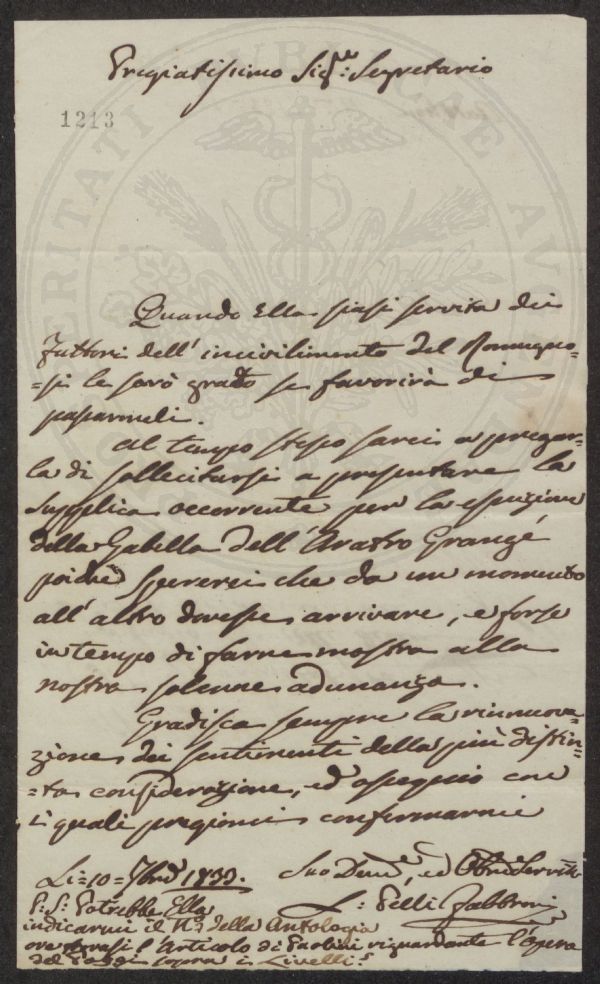 Pregiatissimo Sig.re Segretario
1213
Quando Ella siasi servita dei
Fattori dell'incivilimento del Romagno-
=si le sarò grato se favorirà di
passarmeli.
Al tempo stesso sarei a pregar-
la di sollecitarsi a presentare la
supplica occorrente per la esenzione
della Gabella dell'Aratro Grangé
poiché spererei che da un momento
all'altro dovesse arrivare, e forse
in tempo di farne mostra alla
nostra solenne adunanza.
Gradisca sempre la rinnuova-
zione dei sentimenti della più distin-
=ta considerazione, ed ossequio con
i quali pregiomi confermarmi
Li = 10 = 7bre 1833.
Suo Dev.e, ed Obb. Servit.
L: Pelli Fabbroni
P:S: Potrebbe Ella
indicarmi il N.o della Antologia
ove trovasi l'Articolo di Paolini riguardante l'opera
del Poggi sopra i Livelli?